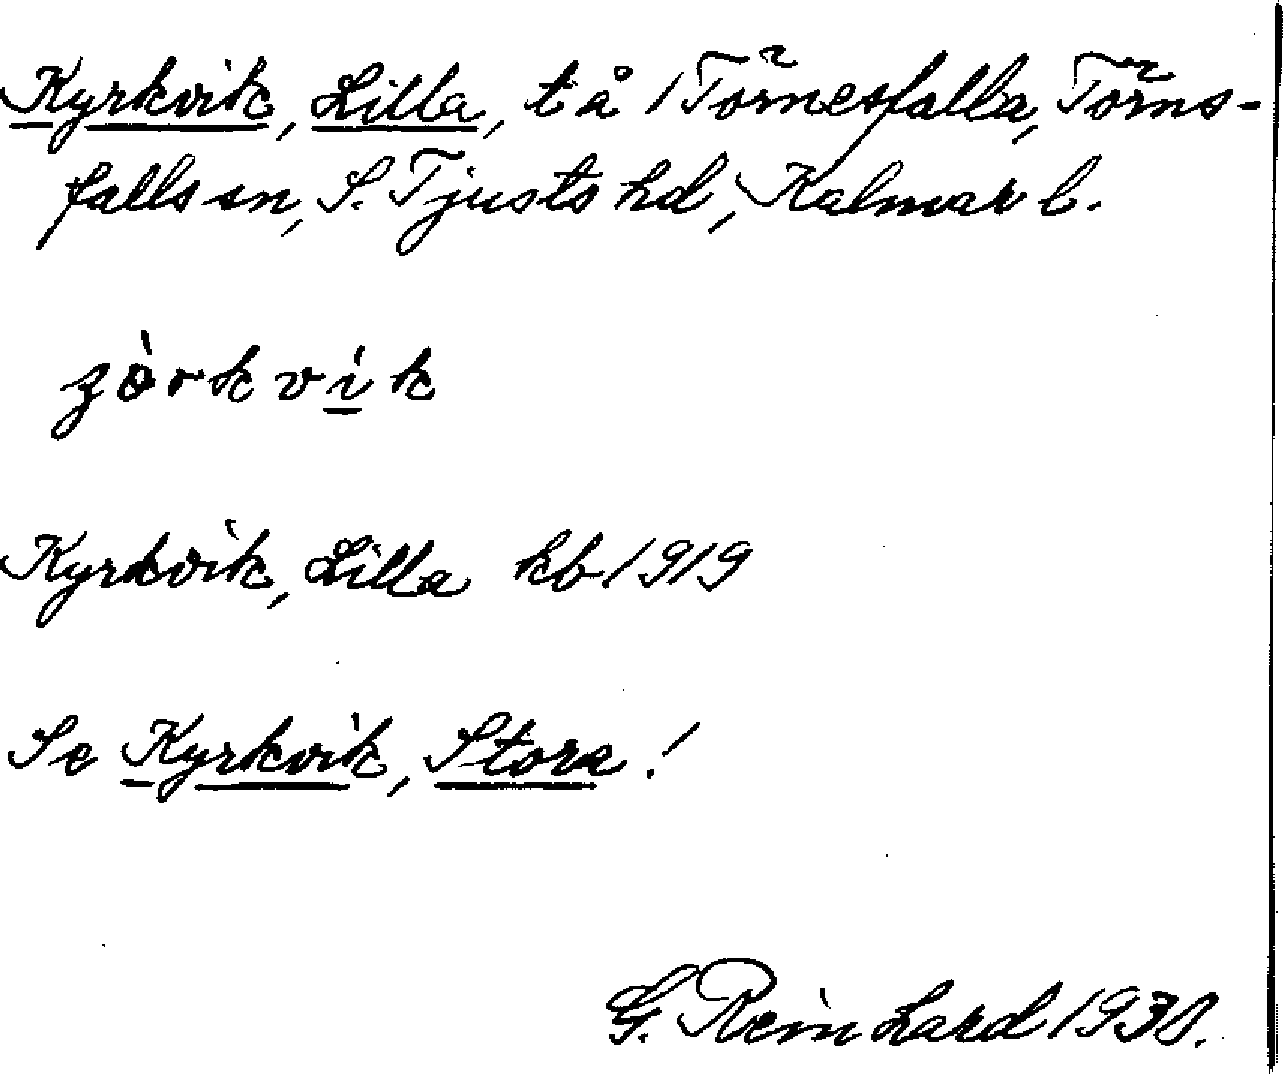 Kyrkvik, Lilla, t å 1 Törnesfalla, Törns-
falls sn, S. Tjusts hd, Kalmar l.
zòrkvik
Kyrkvik, Lilla kb 1919
Se Kyrkvik, Stora!
G. Reinhard 1930.